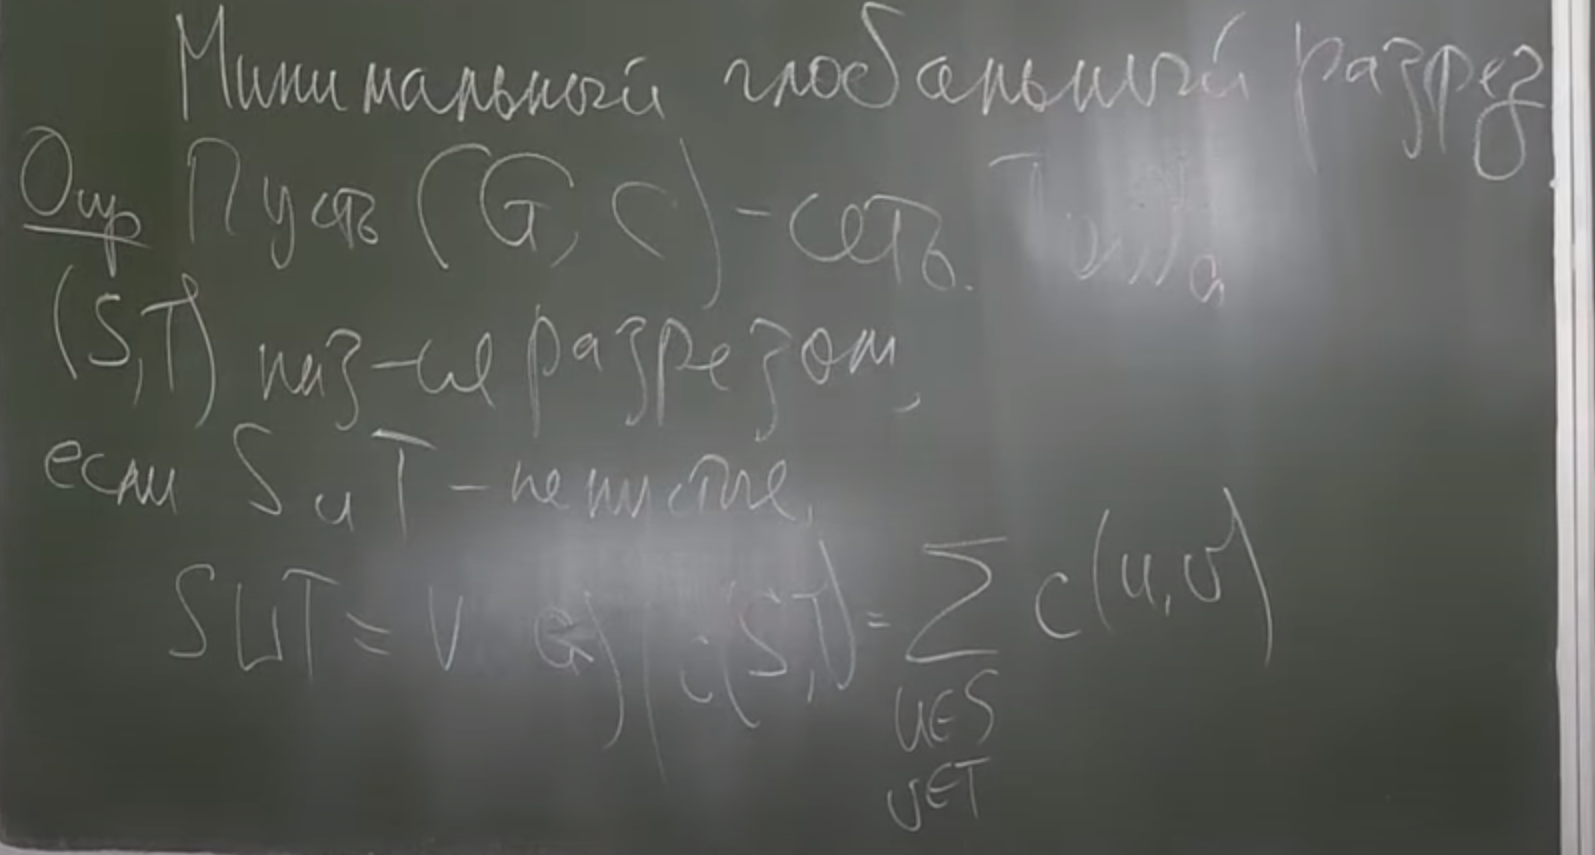 Минимальный глобальный разрез
Опр Пусть (G, c) - сеть. Тогда
(S,T) наз-ся разрезом,
если S и T - непустые,
S⊔T = V(G), c(S,T) = ∑ c(u,v)
u∈S
v∈T